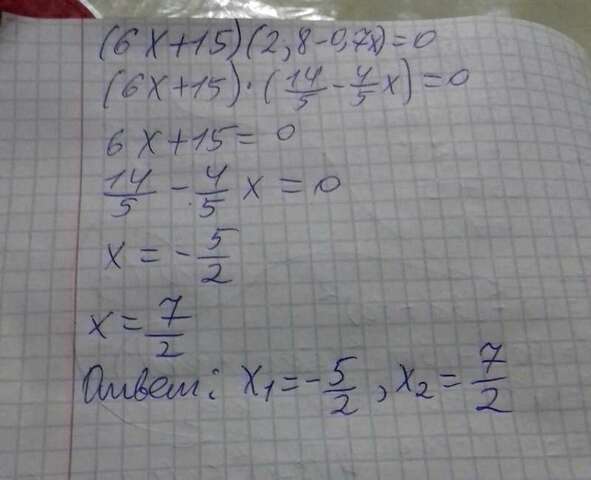 (6x+15)(2,8-0,7x)=0
(6x+15)·(14/5-4/5x)=0
6x+15=0
14/5-4/5x=0
x=-5/2
x=7/2
Ответ: x₁=-5/2, x₂=7/2